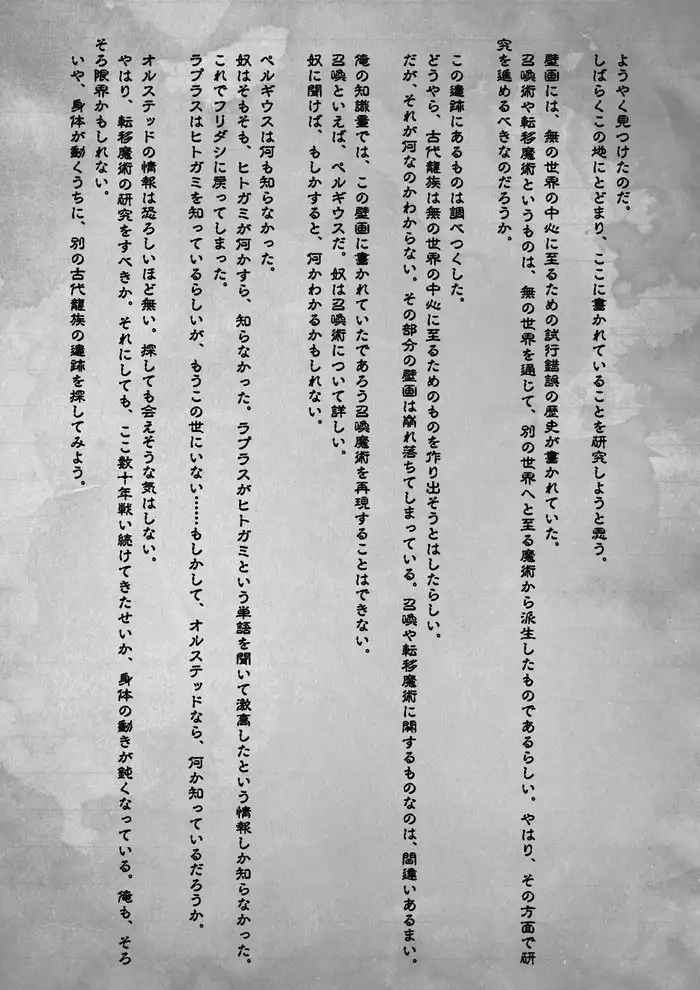 ようやく見つけたのだ。
しばらくこの地にとどまり、ここに書かれていることを研究しようと思う。
壁画には、無の世界の中心に至るための試行錯誤の歴史が書かれていた。
召喚術や転移魔術というものは、無の世界を通じて、別の世界へと至る魔術から派生したものであるらしい。やはり、その方面で研
究を進めるべきなのだろうか。
この遺跡にあるものは調べつくした。
どうやら、古代龍族は無の世界の中心に至るためのものを作り出そうとはしたらしい。
だが、それが何なのかわからない。その部分の壁画は崩れ落ちてしまっている。召喚や転移魔術に関するものなのは、間違いあるまい。
俺の知識量では、この壁画に書かれていたであろう召喚魔術を再現することはできない。
召喚といえば、ペルギウスだ。奴は召喚術について詳しい。
奴に聞けば、もしかすると、何かわかるかもしれない。
ペルギウスは何も知らなかった。
奴はそもそも、ヒトガミが何かすら、知らなかった。ラプラスがヒトガミという単語を聞いて激高したという情報しか知らなかった。
これでフリダシに戻ってしまった。
ラプラスはヒトガミを知っているらしいが、もうこの世にいない……もしかして、オルステッドなら、何か知っているだろうか。
オルステッドの情報は恐ろしいほど無い。探しても会えそうな気はしない。
やはり、転移魔術の研究をすべきか。それにしても、ここ数十年戦い続けてきたせいか、身体の動きが鈍くなっている。俺も、そろ
そろ限界かもしれない。
いや、身体が動くうちに、別の古代龍族の遺跡を探してみよう。